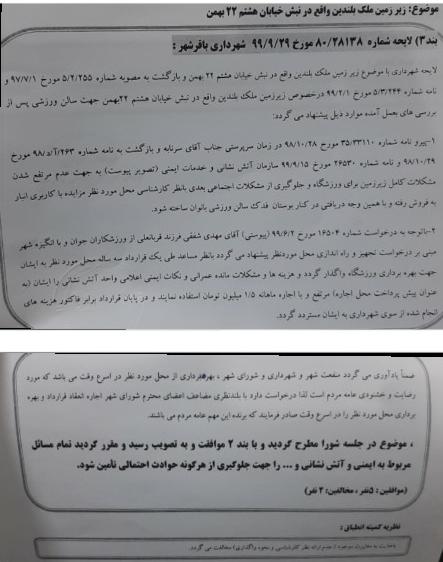 موضوع: زیر زمین ملک بلندین واقع در نبش خیابان هشتم ۲۲ بهمن
بند۳) لایحه شماره ۸۰/۲۸۱۳۸ مورخ ۹۹/۹/۲۹ شهرداری باقرشهر:
لایحه شهرداری با موضوع زیر زمین ملک بلندین واقع در نبش خیابان هشتم ۲۲ بهمن و بازگشت به مصوبه شماره ۵/۲/۲۵۵ مورخ ۹۷/۷/۱ و
نامه شماره ۵/۳/۲۴۴ مورخ ۹۹/۲/۱ درخصوص زیرزمین ملک بلندین واقع در نبش خیابان هشتم ۲۲بهمن جهت سالن ورزشی پس از
بررسی های بعمل آمده موارد ذیل پیشنهاد می گردد:
۱-پیرو نامه شماره ۳۵/۳۳۱۱۰ مورخ ۹۸/۱۰/۲۸ در زمان سرپرستی جناب آقای سرنابه و بازگشت به نامه شماره ۲۶۳/آ/د/۹۸ مورخ
۹۸/۱۰/۲۹ و نامه شماره ۲۶۵۳۰ مورخ ۹۹/۹/۱۵ سازمان آتش نشانی و خدمات ایمنی (تصویر پیوست) به جهت عدم مرتفع شدن
مشکلات کامل زیرزمین برای ورزشگاه و جلوگیری از مشکلات اجتماعی بعدی بانظر کارشناسی محل مورد نظر مزایده با کاربری انبار
به فروش رفته و با همین وجه دریافتی در کنار بوستان فدک سالن ورزشی بانوان ساخته شود.
۲-باتوجه به درخواست شماره ۱۶۵۰۴ مورخ ۹۹/۶/۲ (پیوستی) آقای مهدی شفقی فرزند قربانعلی از ورزشکاران جوان و با انگیزه شهر
مبنی بر درخواست تجهیز و راه اندازی محل موردنظر پیشنهاد می گردد بانظر مساعد طی یک قرارداد سه ساله محل مورد نظر به ایشان
جهت بهره برداری ورزشگاه واگذار گردد و هزینه ها و مشکلات مانده عمرانی و نکات ایمنی اعلامی واحد آتش نشانی را ایشان (به
عنوان پیش پرداخت محل اجاره) مرتفع و با اجاره ماهانه ۱/۵ میلیون تومان استفاده نمایند و در پایان قرارداد برابر فاکتور هزینه های
انجام شده از سوی شهرداری به ایشان مسترد گردد.
ضمناً یادآوری می گردد منفعت شهر و شهرداری و شورای شهر ، بهره‌برداری از محل مورد نظر در اسرع وقت می باشد که مورد
رضایت و خشنودی عامه مردم است لذا درخواست دارد با بلندنظری مضاعف اعضای محترم شورای شهر اجاره انعقاد قرارداد و بهره
برداری محل مورد نظر را در اسرع وقت صادر فرمایند که برنده این مهم عامه مردم می باشند.
، موضوع در جلسه شورا مطرح گردید و با بند ۲ موافقت و به تصویب رسید و مقرر گردید تمام مسائل
مربوط به ایمنی و آتش نشانی و ... را جهت جلوگیری از هرگونه حوادث احتمالی تأمین شود.
(موافقین: ۵نفر ، مخالفین: ۲ نفر)
نظریه کمیته انطباق :
نظر کارشناسی و نحوه واگذاری) مخالفت می گردد.